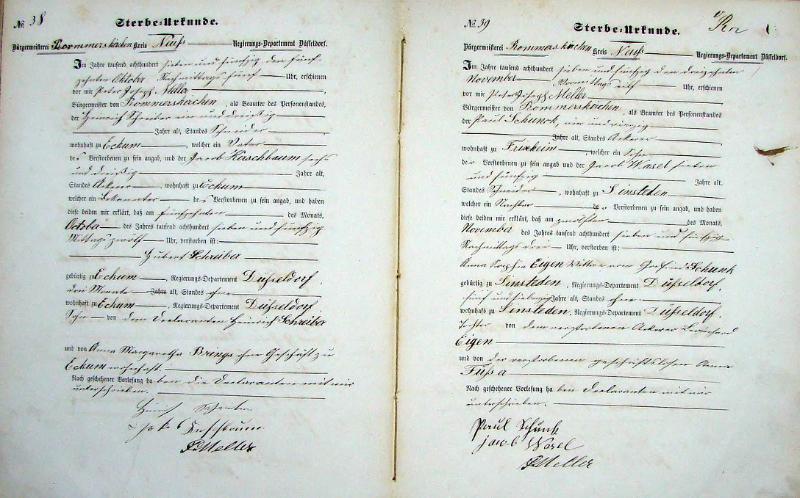 № 38
Sterbe-Urkunde.
Bürgermeisterei Rommerskirchen Kreis Neuß Regierungs-Departement Düsseldorf.
Im Jahr tausend achthundert sieben und fünfzig den fünf
zehnten Oktober Nachmittags fünf Uhr, erschienen
vor mir Peter Joseph
Bürgermeister von Rommerskirchen, als Beamter des Personenstandes,
der Heinrich Schreiber ein und dreißig
Jahre alt, Standes Schneider
wohnhaft zu Eckum welcher ein Vater
de Verstorbenen zu sein angab, und der Jacob Kirschbaum sechs
und dreißig Jahre alt,
Standes Ackerer wohnhaft zu Eckum
welcher ein Bekannter des Verstorbenen zu sein angab, und haben
diese beiden mir erklärt, daß am fünfzehnten des Monats
October des Jahres tausend achthundert sieben und fünfzig
Mittags zwölf Uhr, verstorben ist:
Hubert Schreiber
gebürtig zu Eckum, Regierungs-Departement Düsseldorf,
drei Monate Jahre alt, Standes ohne
wohnhaft zu Eckum, Regierungs-Departement Düsseldorf,
Sohn von dem Declaranten Heinrich Schreiber
und von Anna Margaretha Brings ohne Geschäft zu
Eckum wohnhaft.
Nach geschehener Vorlesung haben die Declaranten mit mir
unterschrieben.
Schreiber
Kirschbaum
Meller
№ 39
Sterbe-Urkunde.
Bürgermeisterei Rommerskirchen Kreis Neuß Regierungs-Departement Düsseldorf.
Im Jahr tausend achthundert sieben und fünfzig den dreizehnten
November Vormittags Uhr, erschienen
vor mir Peter Joseph Meller
Bürgermeister von Rommerskirchen, als Beamter des Personenstandes
der Paul Schunck,
Jahre alt, Standes Ackerer
wohnhaft zu Frixheim welcher ein Sohn
de Verstorbenen zu sein angab und der Jacob Wasel sieben
und fünfzig Jahre alt,
Standes Schneider, wohnhaft zu Sinsteden
welcher ein Nachbar de Verstorbenen zu sein angab, und haben
diese beiden mir erklärt, daß am zwölften des Monats
November des Jahres tausend achthundert sieben und fünfzig
Nachmittags drei Uhr, verstorben ist:
Anna Sophia Eigen Wittwe von Schunk
gebürtig zu Sinsteden, Regierungs-Departement Düsseldorf,
fünf und siebenzig Jahre alt, Standes ohne
wohnhaft zu Sinsteden, Regierungs-Departement Düsseldorf,
Tochter von dem verstorbenen Ackerer
Eigen
und von der verstorbenen geschäftslosen Anna
Nach geschehener Vorlesung haben Declaranten mit mir
unterschrieben.
Paul Schunk
jacob Wasel
Meller